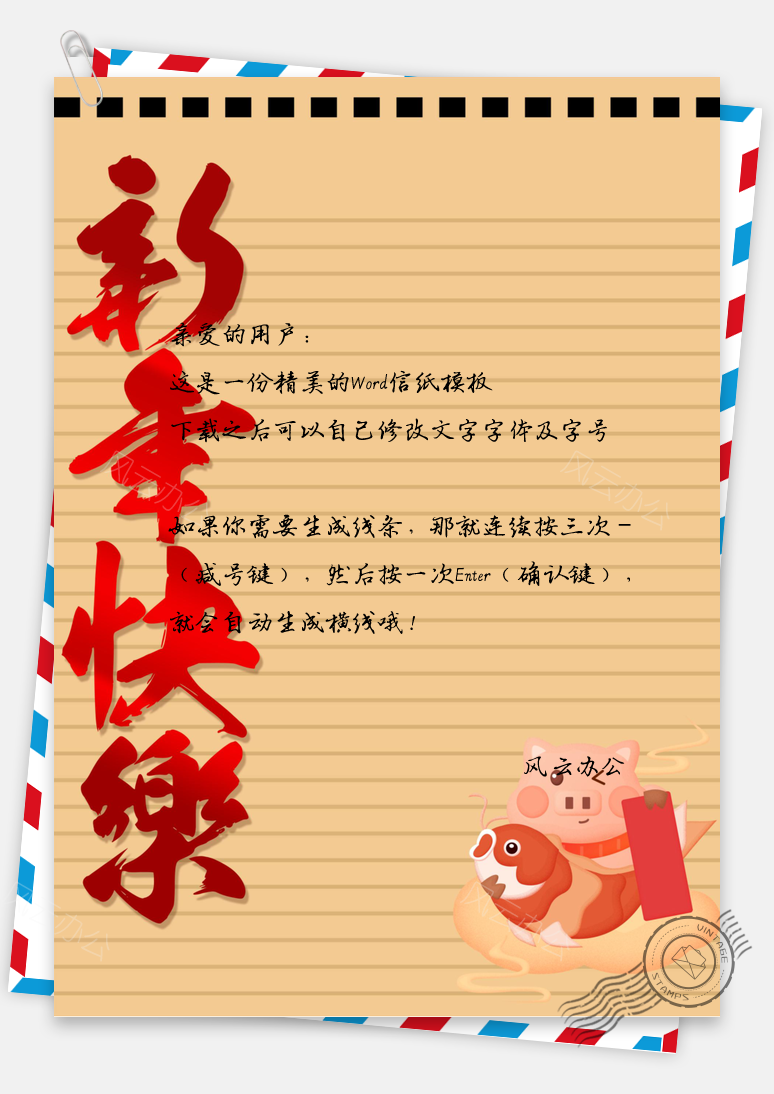 新年快樂
亲爱的用户：
这是一份精美的Word信纸模板
下载之后可以自己修改文字字体及字号
如果你需要生成线条，那就连续按三次－
（减号键），然后按一次Enter（确认键），
就会自动生成横线哦！
风云办公
风云办公
风云办公
风云办公
风云办公
VINTAGE
STAMPS